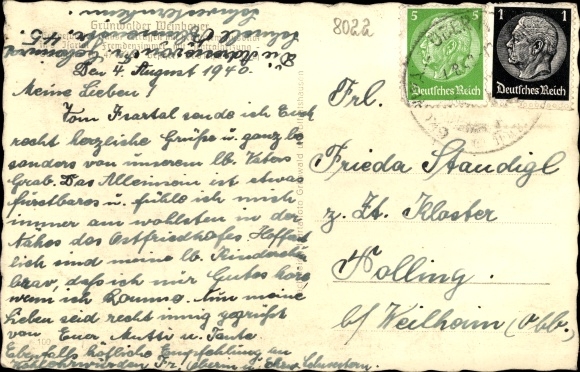 Grünwalder Weinbauer
Den 4. August 1940.
Meine Lieben!
Vom Isartal sende ich Euch
recht herzliche Grüße u. ganz be
sonders von unserem lb. Vaters
Grab. Das Alleinsein ist etwas
furchtbares u. fühle ich mich
immer am wohlsten in der
Nähe des Ostfriedhofes. Hoffent
lich sind meine lb. Kinderchen
brav, dass ich nur Gutes höre
wenn ich komme. Nun meine
Lieben seid recht innig gegrüßt
von Euer Mutti u. Tante
Ebenfalls höfliche Empfehlung an
Hochehrwürden Fr. Oberin u. Ehrw. Schwestern.
8022
5 5
Deutsches Reich
1 1
Deutsches Reich
Frl.
Frieda Standigl
z. Zt. Kloster
Polling.
b/ Weilheim (Obb.)